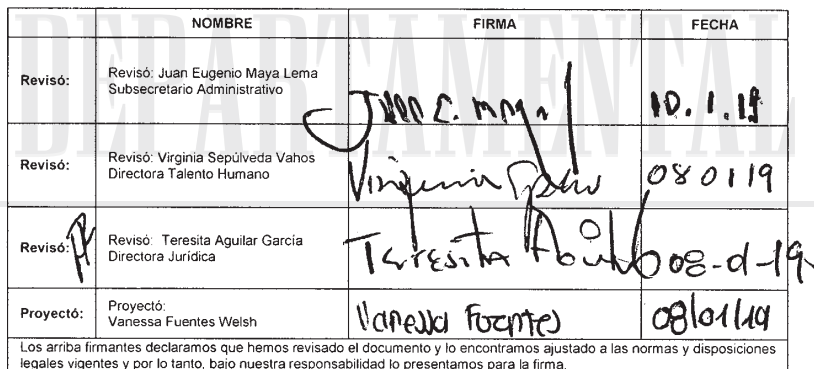 DEPARTAMENTAL
NOMBRE FIRMA FECHA
Revisó: Revisó: Juan Eugenio Maya Lema
Subsecretario Administrativo
10. 1. 19
Revisó: Revisó: Virginia Sepúlveda Vahos
Directora Talento Humano
Virginia 080119
Revisó: Revisó: Teresita Aguilar García
Directora Jurídica
Teresita 008-d-19
Proyectó: Proyectó:
Vanessa Fuentes Welsh
Vanessa Fuentes 08/01/19
Los arriba firmantes declaramos que hemos revisado el documento y lo encontramos ajustado a las normas y disposiciones
legales vigentes y por lo tanto, bajo nuestra responsabilidad lo presentamos para la firma.